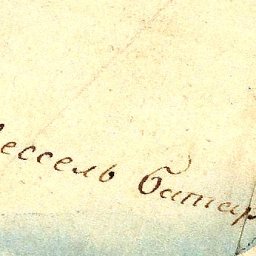 ессель батар